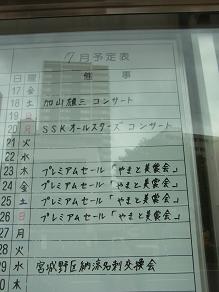 7月予定表
日 曜 催事
17 金
18 土 加山雄三 コンサート
19 日
20 月 SSKオールスターズ コンサート
21 火
22 水
23 木 プレミアムセール「やまと美裳会」
24 金 プレミアムセール「やまと美裳会」
25 土 プレミアムセール「やまと美裳会」
26 日 プレミアムセール「やまと美裳会」
27 月
28 火
29 水 宮城野区納涼名刺交換会
30 木